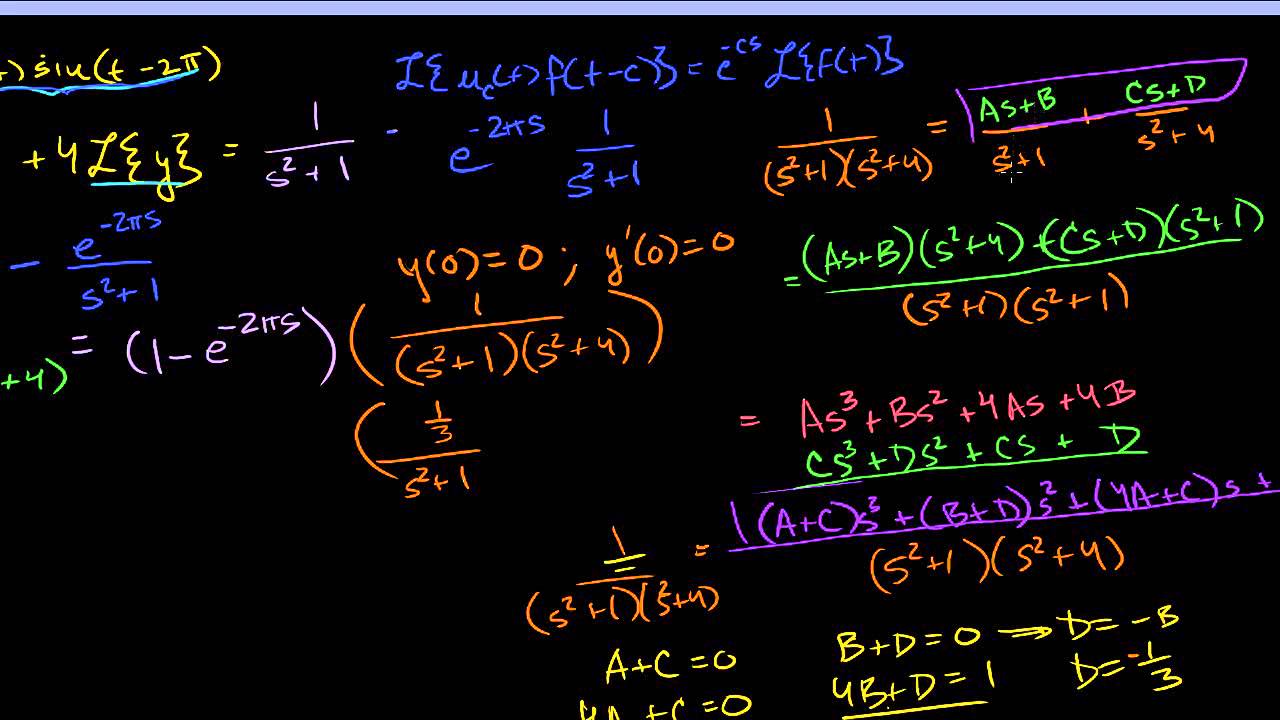 ) sin(t - 2π)
ℒ{u_c(t) f(t-c)} = e^{-cs} ℒ{f(t)}
+ 4ℒ{y} = 1/(s²+1) - e^{-2πs} 1/(s²+1)
1/((s²+1)(s²+4)) = (As+B)/(s²+1) + (Cs+D)/(s²+4)
- e^{-2πs}/(s²+1)
y(0) = 0 ; y'(0) = 0
= ((As+B)(s²+4) + (Cs+D)(s²+1))/((s²+1)(s²+1))
+4)
= (1 - e^{-2πs}) (1/((s²+1)(s²+4)))
( (1/3)/(s²+1)
= As³ + Bs² + 4As + 4B
Cs³ + Ds² + Cs + D
1/((s²+1)(s²+4)) = (A+C)s³ + (B+D)s² + (4A+C)s + / (s²+1)(s²+4)
A+C = 0
4A+C = 0
B+D = 0 → D = -B
4B+D = 1
D = -1/3